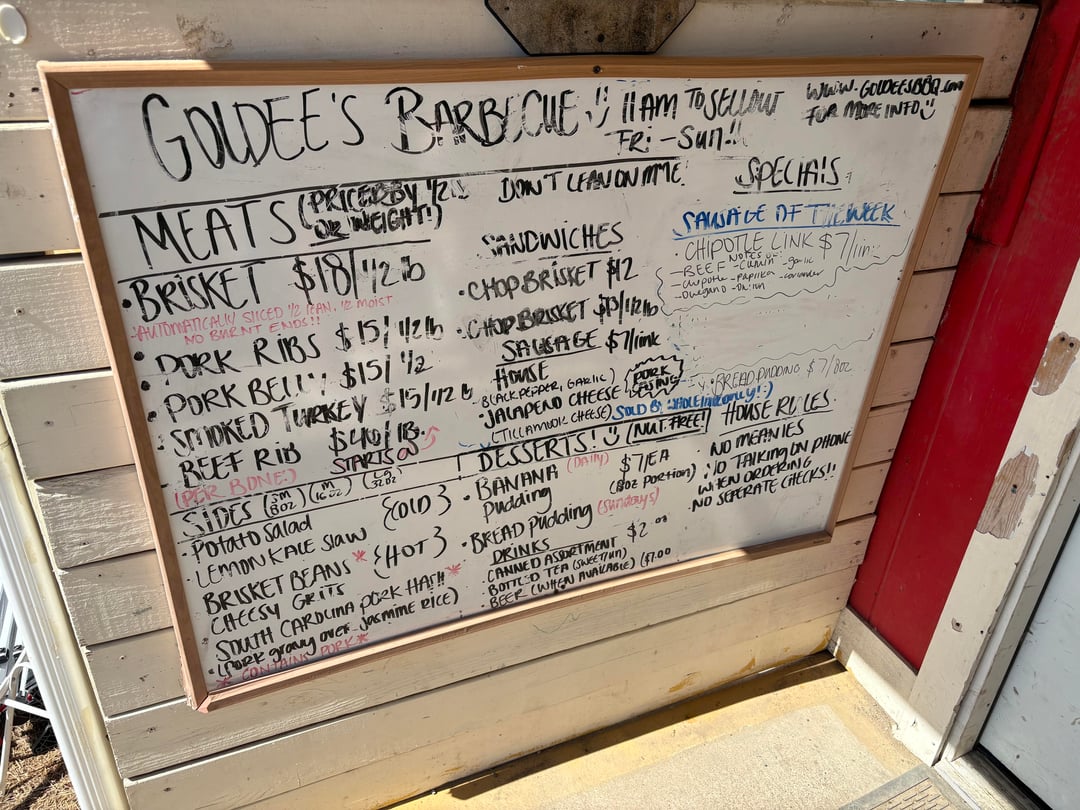 GOLDEE'S BARBECUE :) 11AM TO SELLOUT
FRI - SUN!!
WWW.GOLDEESBBQ.com
FOR MORE INFO :)
MEATS (PRICED BY 1/2 lb
OR WEIGHT!)
• BRISKET $18/1/2 lb
-AUTOMATICALLY SLICED 1/2 LEAN, 1/2 MOIST
NO BURNT ENDS!!
• PORK RIBS $15/1/2 lb
• PORK BELLY $15/1/2
• SMOKED TURKEY $15/1/2 lb
• BEEF RIB $40/lb
(PER BONE!) STARTS @
DON'T LEAN ON ME!
SANDWICHES
• CHOP BRISKET $12
• CHOP BRISKET /1/2 lb
SAUSAGE $7/link
HOUSE
BLACK PEPPER, GARLIC)
PORK
CASING
• JALAPENO CHEESE
(TILLAMOOK CHEESE) SOLD BY WHOLE LINK ONLY!)
SPECIALS
SAUSAGE OF THE WEEK
• CHIPOTLE LINK $7/link
NOTES OF:
- BEEF - Cumin - garlic
- chipotle - Paprika - coriander
- Oregano - Onion
BREAD PUDDING $7/8oz
SIDES (SM 8oz) (M 16oz) (LG 32oz)
• POTATO SALAD
• LEMON KALE SLAW
{COLD}
BRISKET BEANS *
CHEESY GRITS
{HOT}
SOUTH CAROLINA PORK HASH *
• (PORK gravy over Jasmine RICE)
* CONTAINS PORK *
DESSERTS! :) (NUT FREE!)
• BANANA (Daily) $7/EA
Pudding (8oz PORTION)
• BREAD Pudding (Sundays)
DRINKS
• CANNED ASSORTMENT $2
• BOTTLED TEA (SWEET/UN)
• BEER (WHEN AVAILABLE) ($7.00
HOUSE RULES
• NO MEANIES
• NO TALKING ON PHONE
WHEN ORDERING
• NO SEPERATE CHECKS!!